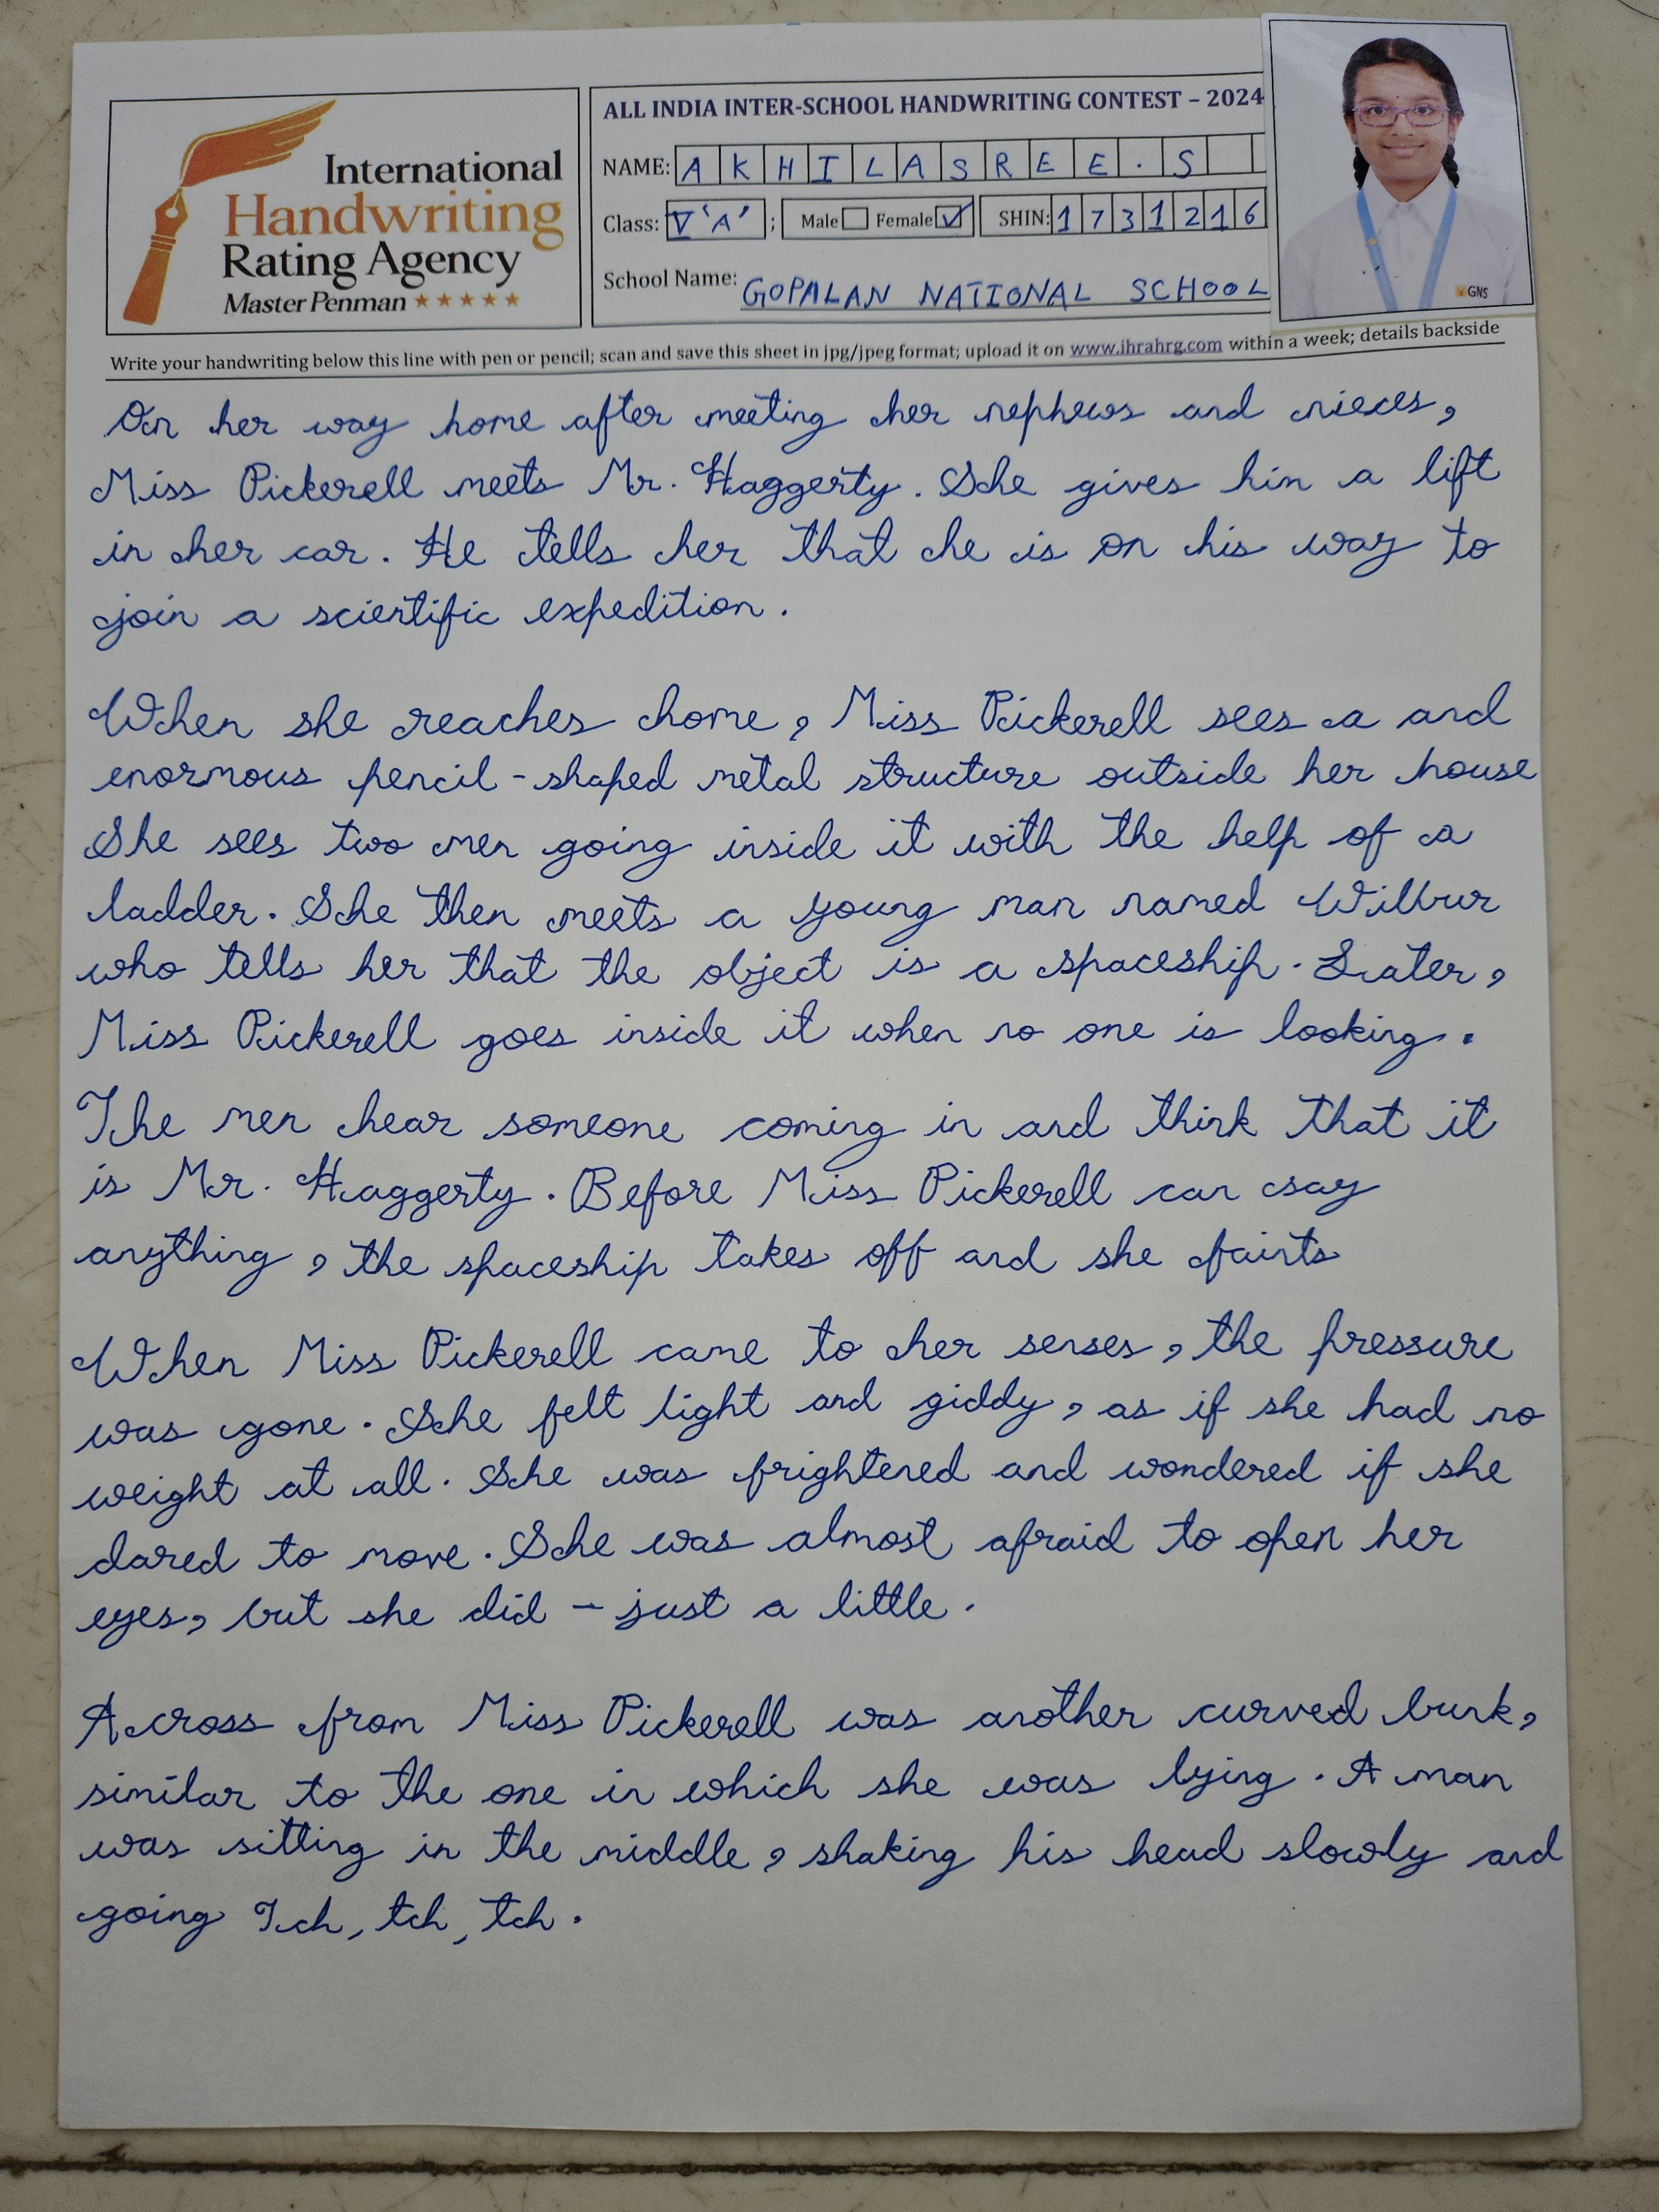 International
Handwriting
Rating Agency
Master Penman
ALL INDIA INTER-SCHOOL HANDWRITING CONTEST – 2024
NAME: AKHILASREE.S
Class: V 'A' ; Male Female ✓ SHIN: 1731216
School Name: GOPALAN NATIONAL SCHOOL
GNS
Write your handwriting below this line with pen or pencil; scan and save this sheet in jpg/jpeg format; upload it on www.ihrahrg.com within a week; details backside
On her way home after meeting her nephews and nieces,
Miss Pickerell meets Mr. Haggerty. She gives him a lift
in her car. He tells her that he is on his way to
join a scientific expedition.
When she reaches home, Miss Pickerell sees a and
enormous pencil-shaped metal structure outside her house
She sees two men going inside it with the help of a
ladder. She then meets a young man named Wilbur
who tells her that the object is a spaceship. Later,
Miss Pickerell goes inside it when no one is looking.
The men hear someone coming in and think that it
is Mr. Haggerty. Before Miss Pickerell can say
anything, the spaceship takes off and she faints
When Miss Pickerell came to her senses, the pressure
was gone. She felt light and giddy, as if she had no
weight at all. She was frightened and wondered if she
dared to move. She was almost afraid to open her
eyes, but she did – just a little.
Across from Miss Pickerell was another curved bunk,
similar to the one in which she was lying. A man
was sitting in the middle, shaking his head slowly and
going Tch, tch, tch.